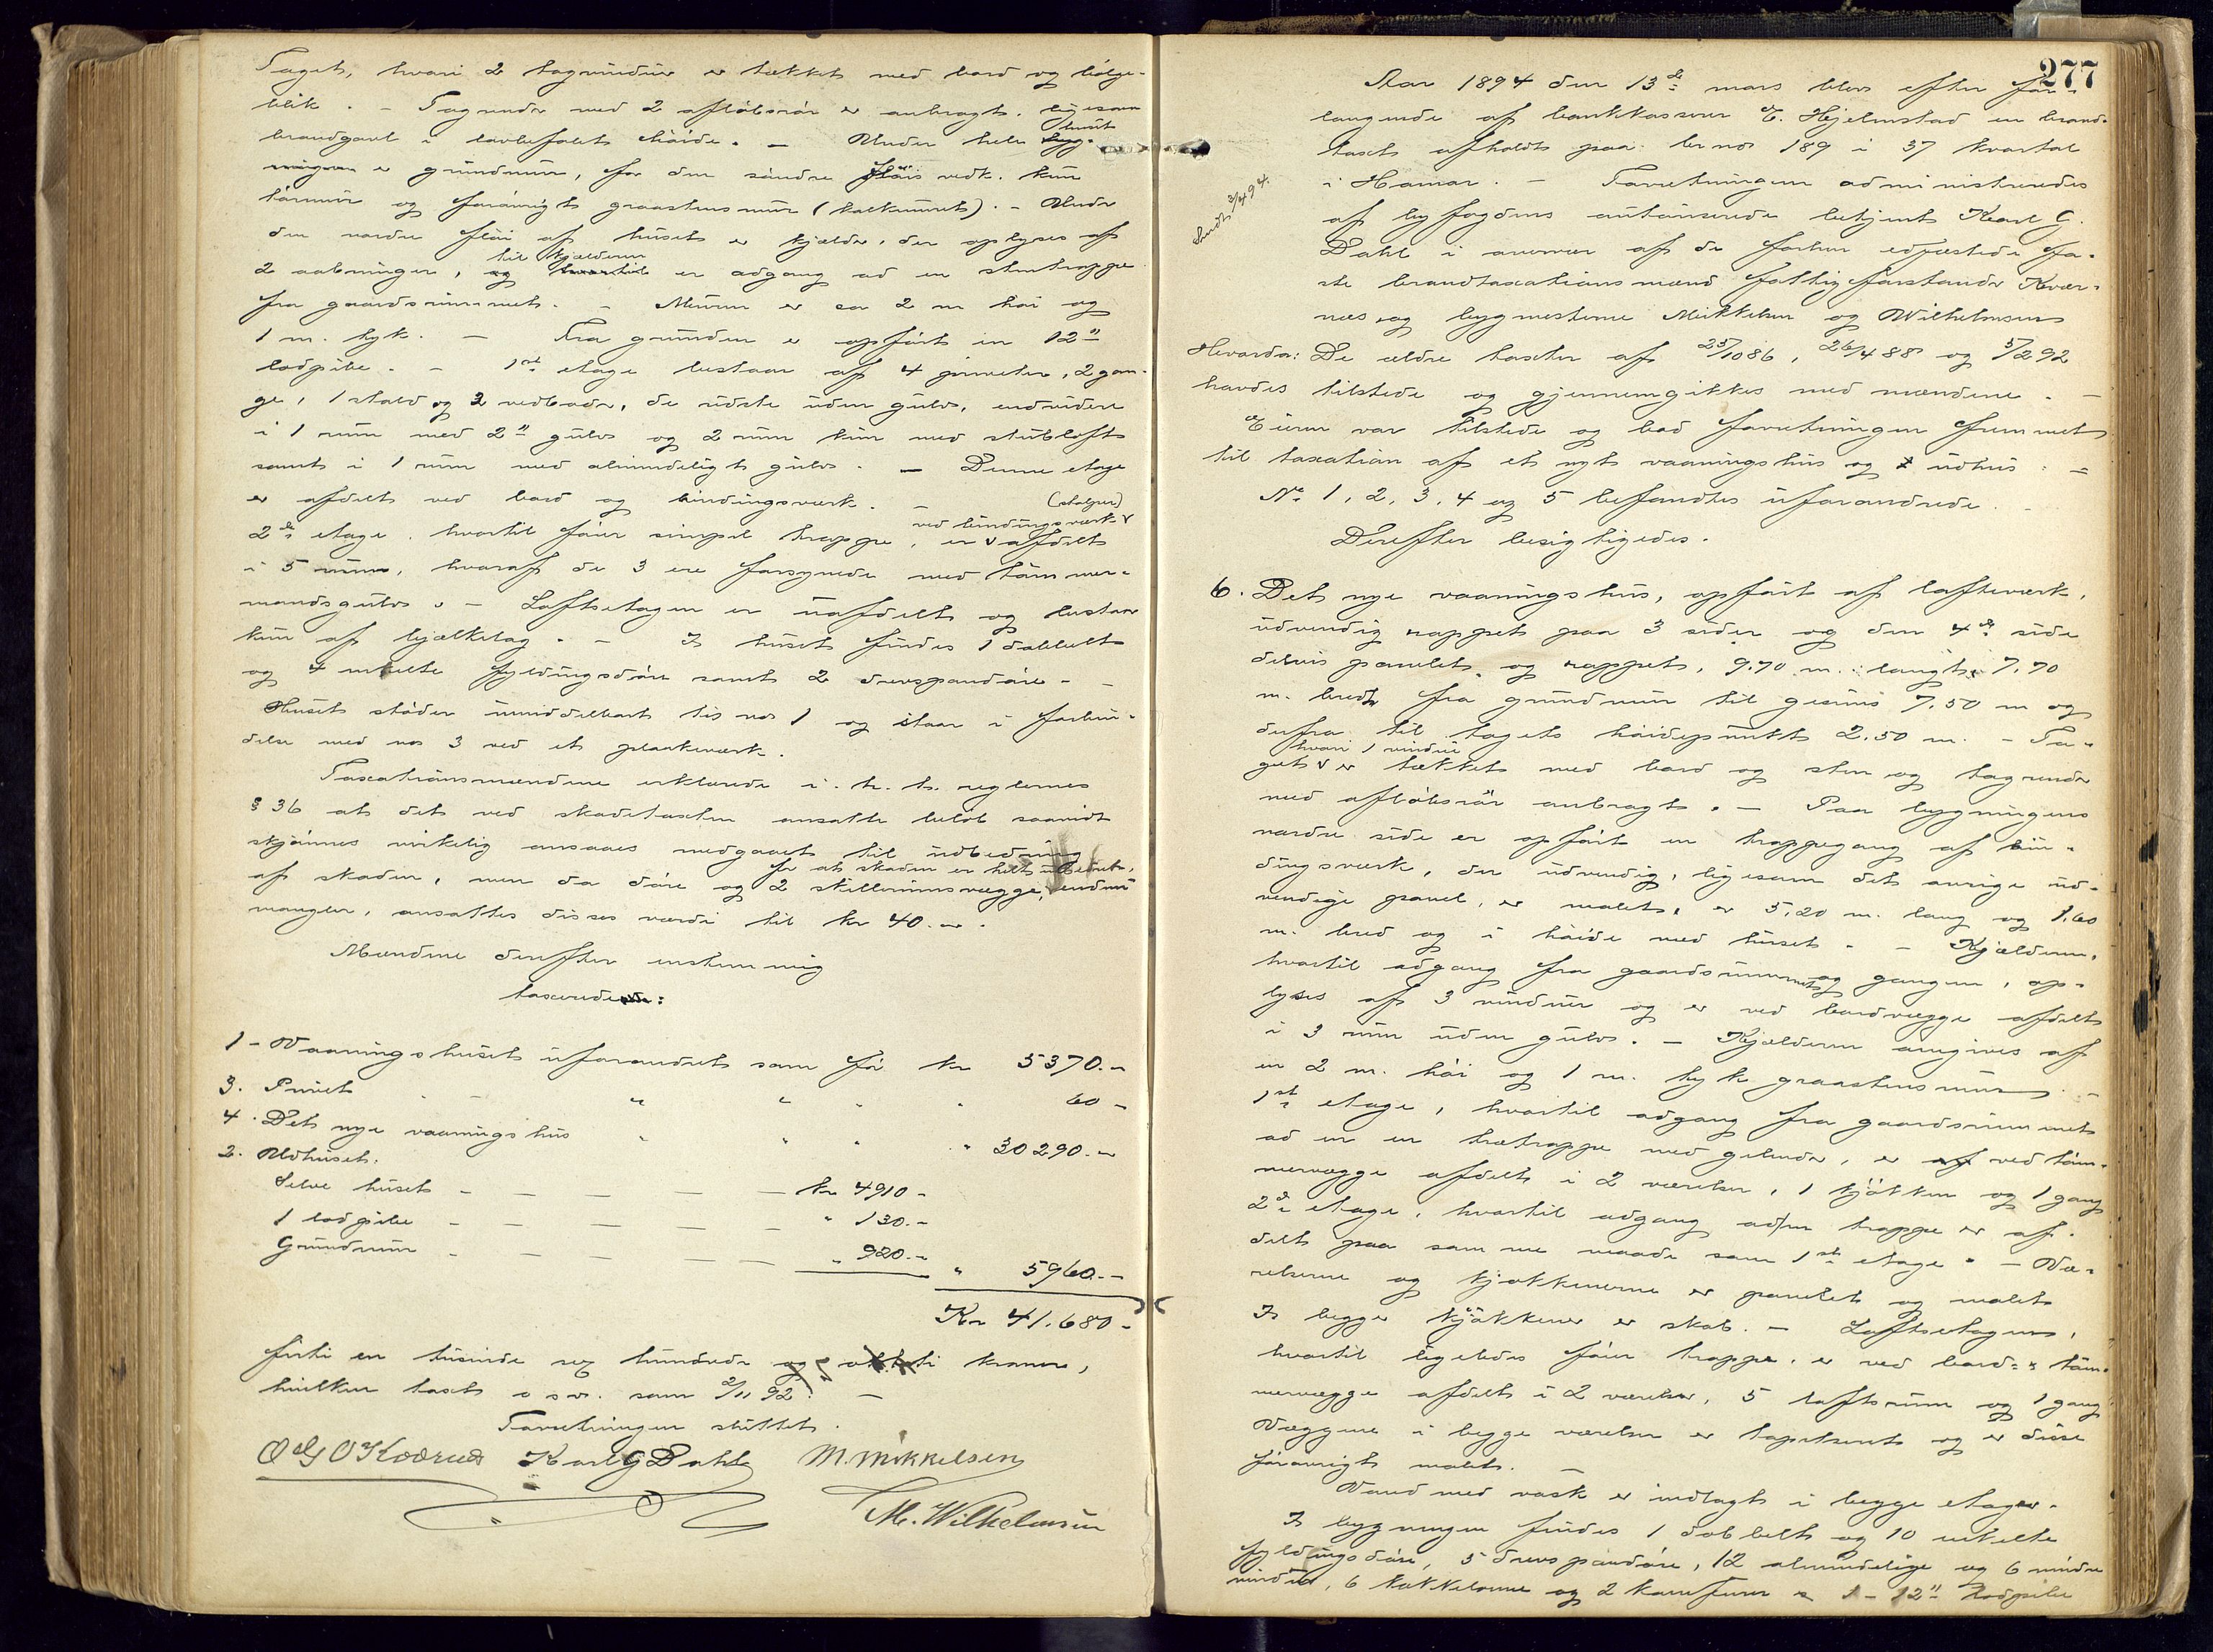 Taget, hvori 2 tagvinduer er tækket med bord og bølge-
blik. – Tagrender med 2 afløbsrør er anbragt, ligesom
brandgavl i lovbefalet høide. – Under hele huset
er grundmur, for den søndre fløis vedk. kun
tørmur og forøvrigt graastensmur (kalkmuret). – Under
den nordre fløi af huset er kjælder, der oplyses af
2 aabninger, til kjælderen er adgang ad en stentrappe
fra gaardsrummet. – Muren er ca 2 m høi og
1 m. tyk. – Fra grunden er opført en 12"
lodpibe. – 1st etage bestaar af 4 priveter, 2 gan-
ge, 1 stald og 2 vedboder, de sidste uden gulv, endvidere
i 1 rum med 2" gulv og 2 rum kun med stubloft
samt i 1 rum med almindeligt gulv. – Denne etage
er afdelt ved bord og bindingsværk. – (stolper)
2den etage, hvortil fører simpel trappe, er ved bindingsværk afdelt
i 5 rum, hvoraf de 3 ere forsynede med tømmer-
mandsgulv. – Loftsetagen er uafdelt og bestaar
kun af bjælkelag. – I huset findes 1 dobbelt
og 4 enkelte fyldingsdøre samt 2 drevspandøre. –
Huset støder umiddelbart til no 1 og staar i forbin-
delse med no 3 ved et plankeværk.
Taxationsmændene erklærede i. h. t. reglernes
§ 36 at det ved skadetaxten ansatte beløb saavidt
skjønnes virkelig ansaaes medgaaet til udbedring
af skaden, for at skaden er helt udbedret, men da døre og 2 skillerumsvægge, endnu
mangler, ansattes disses værdi til kr 40.–.
Mændene derefter enstemmig
taxerede:
1 – Vaaningshuset uforandret som før kr 5370.–
3. Privet " " " " 60 –
4. Det nye vaaningshus " " " " 30290.–
2. Udhuset.
Selve huset – – – – – kr 4910 –
1 lodpibe – – – – – " 130.–
Grundmur – – – – – " 920.– " 5960.–
Kr 41.680 –
firti en tusinde sex hundrede og otteti kroner,
hvilken taxt o s v. som 2/11 92. –
Forretningen sluttet.
O G O Kodrud Karl G Dahl M. Mikkelsen
M. Wilhelmsen
277
Aar 1894 den 13de mars blev efter for-
langende af bankkasserer E. Hjelmstad en brand-
taxt afholdt paa br no 189 i 37 kvartal
i Hamar. – Forretningen administreredes
af byfogdens autoriserede betjent Karl G.
Dahl i overvær af de forhen edfæstede fa-
ste brandtaxationsmænd fattigforstander Kvær-
næs og bygmesterne Mikkelsen og Wilhelmsen
Hvorda: De ældre taxter af 25/10 86, 26/4 88 og 5/2 92
havdes tilstede og gjennemgikkes med mændene. –
Eieren var tilstede og bad forretningen fremmet
til taxation af et nyt vaaningshus og udhus: –
No 1, 2, 3, 4 og 5 befandtes uforandrede. –
Derefter besigtigedes.
6. Det nye vaaningshus, opført af lafteværk,
udvendig rappet paa 3 sider og den 4de side
delvis panelet og rappet, 9.70 m. langt, 7.70
m. bredt fra grundmur til gesims 7.50 m og
derfra til tagets høidepunkt 2.50 m. – Ta-
get hvori 1 vindue er tækket med bord og sten og tagrender
med afløbsrør anbragt. – Paa bygningens
nordre side er opført en trappegang af bin-
dingsværk, der udvendig, ligesom det øvrige ud-
vendige panel, er malet, er 5,20 m. lang og 1.60
m. bred og i høide med huset. – Kjælderen,
hvortil adgang fra gaardsrummet og gangen, op-
lyses af 3 vinduer og er ved bordvægge afdelt
i 3 rum uden gulv. – Kjælderen omgives af
en 2 m. høi og 1 m. tyk graastensmur. –
1st etage, hvortil adgang fra gaardsrummet
ad en trætrappe med gelender, er ved tøm-
mervægge afdelt i 2 værelser, 1 kjøkken og 1 gang
2den etage, hvortil adgang ad en trappe er af-
delt paa samme maade som 1st etage. – Væ-
relserne og kjøkkenerne er panelet og malet
I begge kjøkkener er skab. – Loftsetagen,
hvortil ligeledes fører trappe, er ved bord- & tøm-
mervægge afdelt i 2 værelser, 5 loftsrum og 1 gang
Væggene i begge værelser er tapetseret og er disse
forøvrigt malet. –
Vand med vask er indlagt i begge etager.
I bygningen findes 1 dobbelt og 10 enkelte
fyldingsdøre, 5 drevspandøre, 12 almindelige og 6 mindre
vinduer, 6 kakkelovne og 2 komfurer & 1 – 12" lodpibe